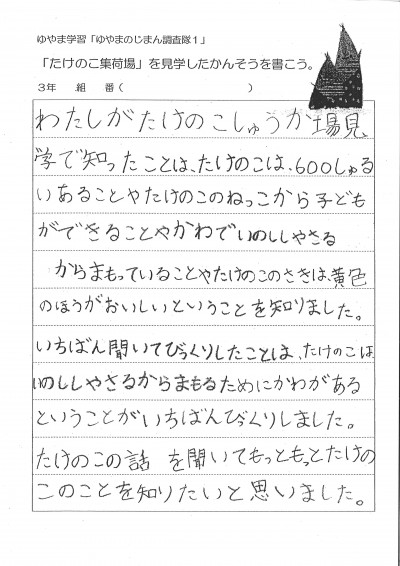 ゆやま学習「ゆやまのじまん調査隊1」
「たけのこ集荷場」を見学したかんそうを書こう。
3年　組　番（　　　　　　　　）
わたしがたけのこしゅうか場見、
学で知ったことは、たけのこは、600しゅる
いあることやたけのこのねっこから子ども
ができることやかわでいのししやさる
からまもっていることやたけのこのさきは、黄色
のほうがおいしいということを知りました。
いちばん聞いてびっくりしたことは、たけのこは、
いのししやさるからまもるためにかわがある
ということがいちばんびっくりしました。
たけのこの話　を聞いてもっともっとたけの
このことを知りたいと思いました。